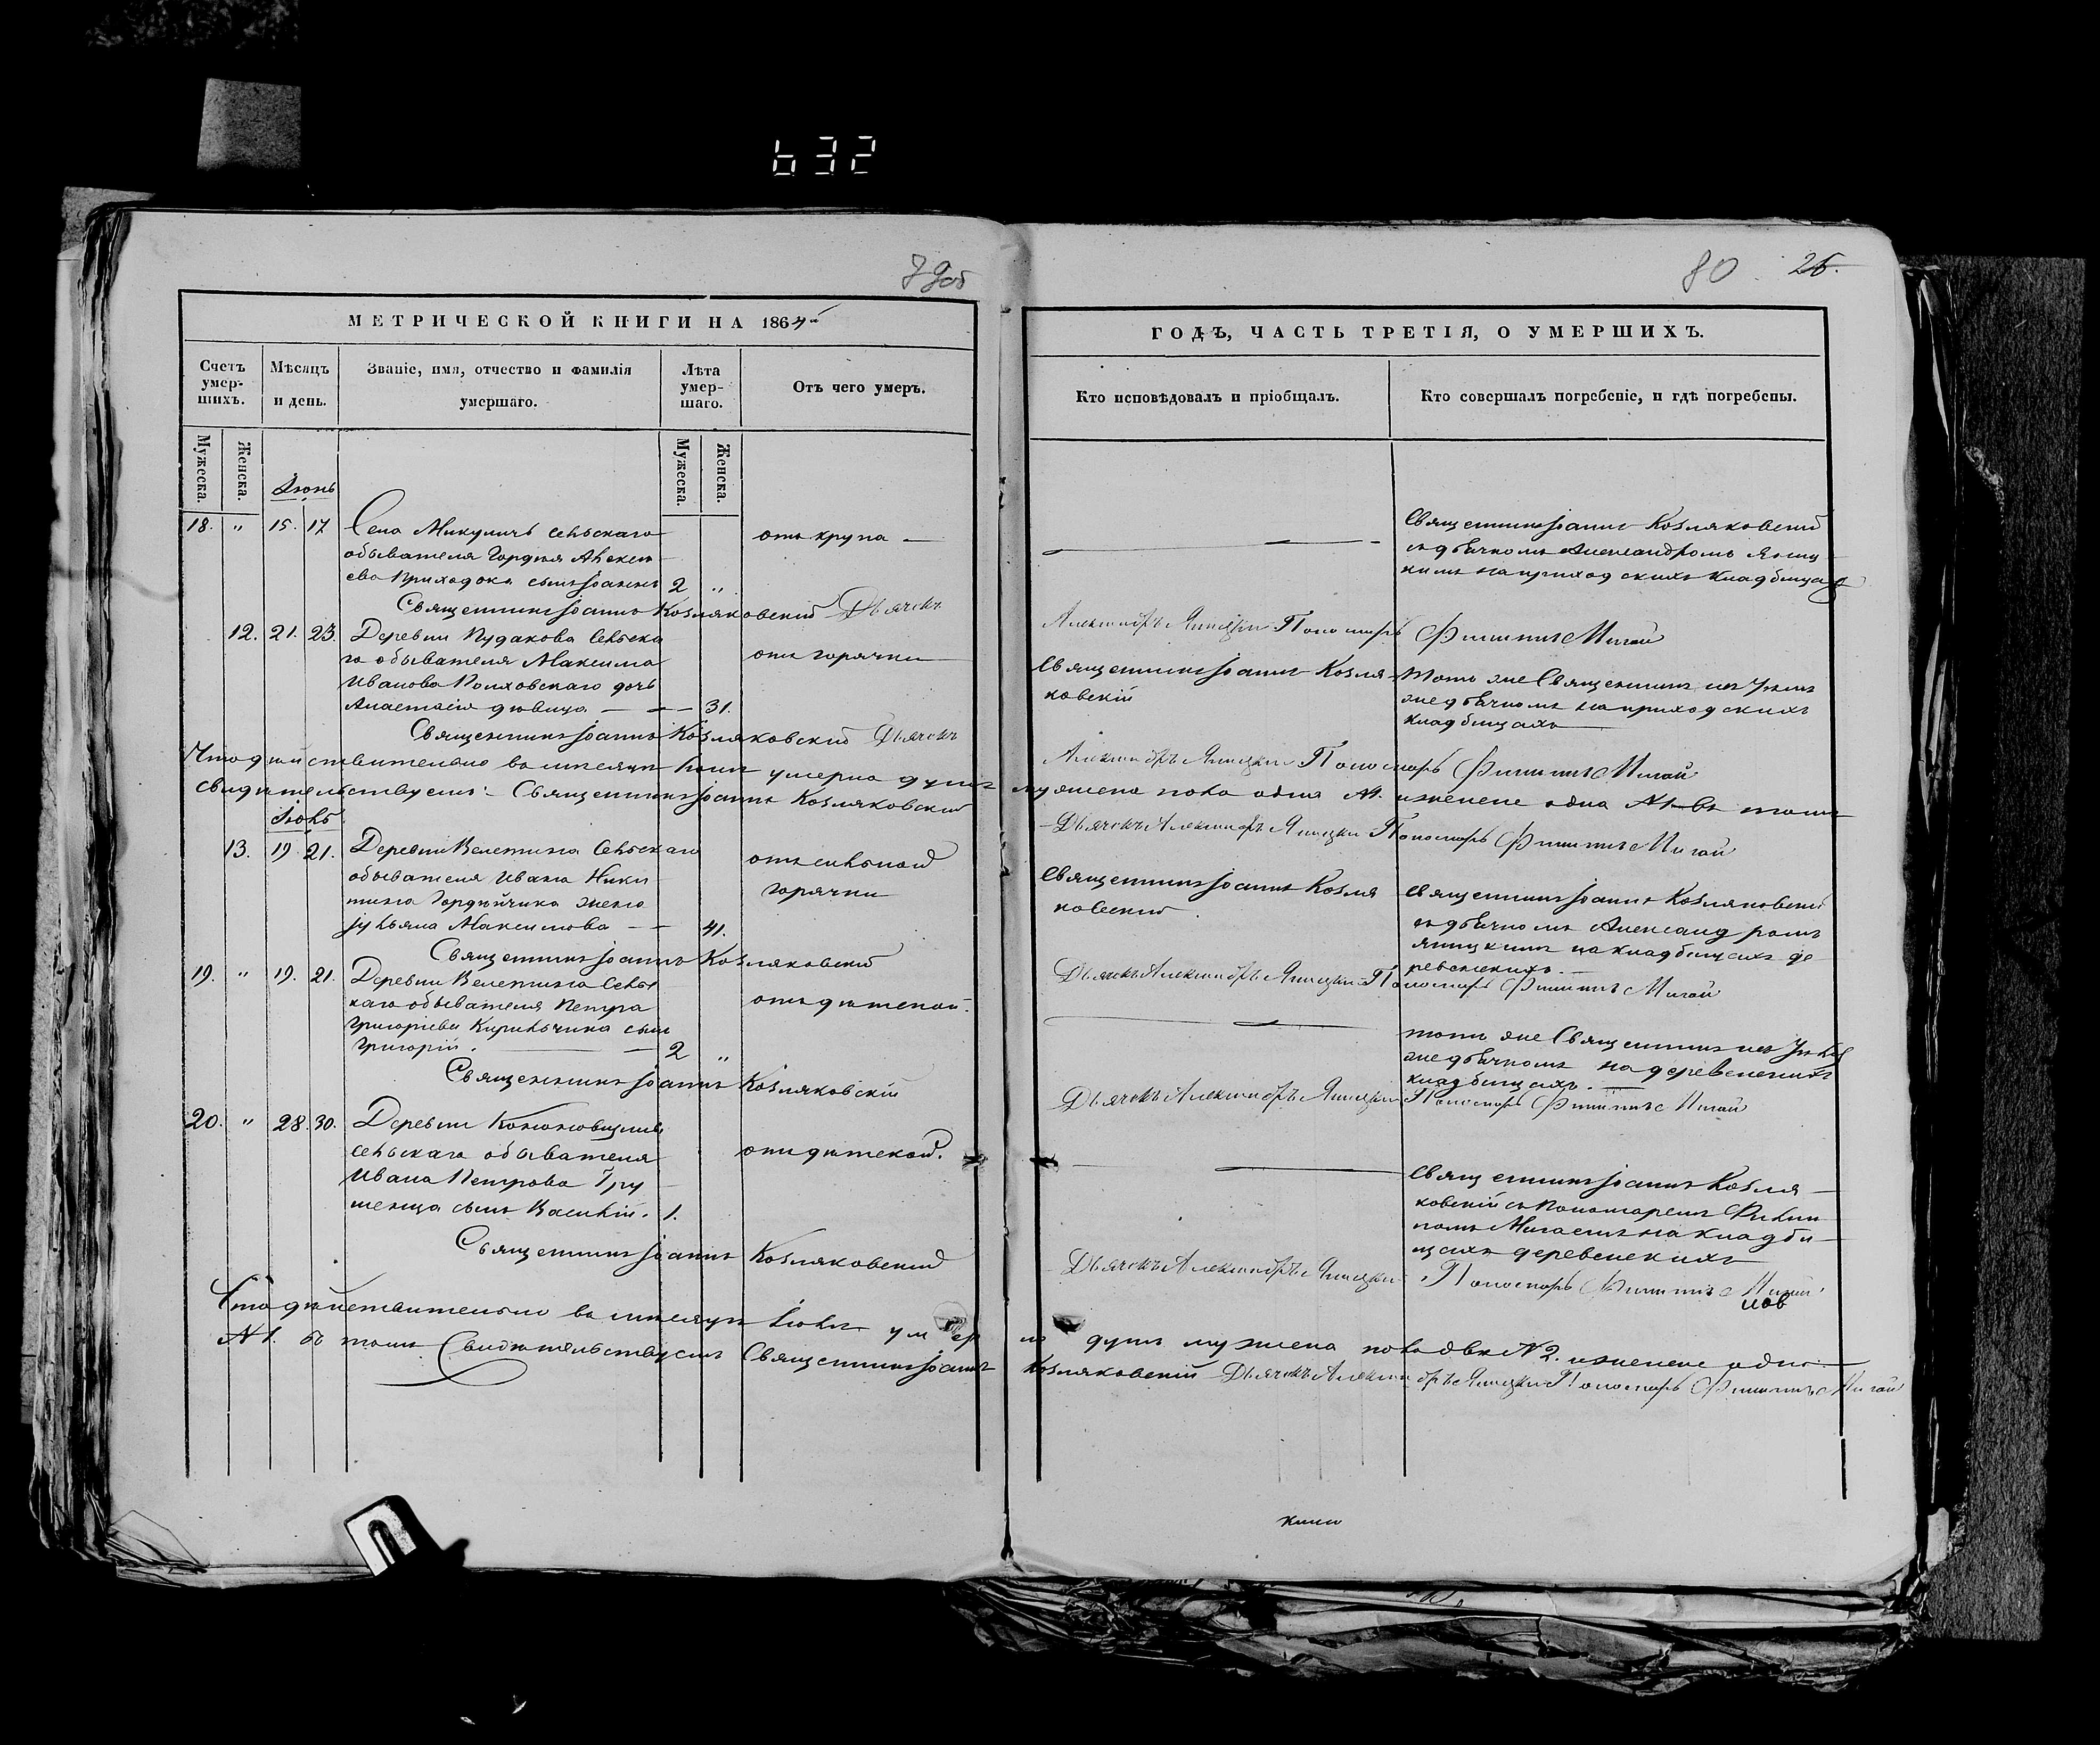 632
79об
80
26.
МЕТРИЧЕСКОЙ КНИГИ НА 1864й
ГОДЪ, ЧАСТЬ ТРЕТІЯ, О УМЕРШИХЪ.
Счетъ умер-
шихъ.
Мѣсяцъ
и день.
Званіе, имя, отчество и фамилія
умершаго.
Лѣта
умер-
шаго.
Отъ чего умеръ.
Кто исповѣдовалъ и пріобщалъ.
Кто совершалъ погребеніе, и гдѣ погребены.
Мужеска.
Женска.
Мужеска.
Женска.
Іюнь
18. " 15. 17 Села Микуличъ сельскаго
обывателя Гордѣя Алексѣ
ева Приходока сынъ Іоаннъ 2 "
отъ крупа
Священникъ Іоаннъ Козляковскій
съ дьячкомъ Александромъ
на приходскихъ кладбищах
Священникъ Іоаннъ Козляковскій Дьячекъ
Александръ Пономарь Филиппъ Мигай
12. 21. 23. Деревни Рудакова сельска
го обывателя Максима
Иванова дочь
Анастасія дѣвица 31.
отъ горячки
Священникъ Іоаннъ Козля
ковскій
тотъ же Священникъ съ тѣмъ
же дьячкомъ на приходскихъ
кладбищахъ
Священникъ Іоаннъ Козляковскій Дьячекъ
Александръ Пономарь Филиппъ Мигай
Что дѣйствительно въ мѣсяцѣ Іюнѣ умерло душъ мужеска пола одна №1. и женска одна №1. въ томъ
свидѣтельствуемъ: Священникъ Іоаннъ Козляковскій
Дьячекъ Александръ Пономарь Филиппъ Мигай
Іюль
13. 19 21. Деревни Велетина сельскаго
обывателя Ивана Ники
тина Гордѣйчика жена
Іуліана Максимова 41.
отъ сильной
горячки
Священникъ Іоаннъ Козля
ковскій.
Священникъ Іоаннъ Козляковскій
съ дьячкомъ Александромъ
на кладбищахъ де
ревенскихъ.
Священникъ Іоаннъ Козляковскій
Дьячекъ Александръ Пономарь Филиппъ Мигай
19. " 19. 21. Деревни Велетина сельс
каго обывателя Петра
Григоріева Кирильчика сынъ
Григорій. 2 "
отъ дѣтской.
тотъ же Священникъ съ тѣмъ
же дьячкомъ на деревенскихъ
кладбищахъ.
Священникъ Іоаннъ Козляковскій
Дьячекъ Александръ Пономарь Филиппъ Мигай
20. " 28. 30. Деревни
сельскаго обывателя
Ивана Петрова Гру
шенца сынъ Василій. 1.
отъ дѣтской.
Священникъ Іоаннъ Козля
ковскій съ Пономаремъ Филип
помъ Мигаемъ на кладби
щахъ деревенскихъ
Священникъ Іоаннъ Козляковскій
Дьячекъ Александръ Пономарь Филиппъ Мигай
Что дѣйствительно въ мѣсяцѣ Іюлѣ умерло душъ мужеска пола двѣ №2. и женска одна
№1. въ томъ Свидѣтельствуемъ Священникъ Іоаннъ Козляковскій Дьячекъ Александръ Пономарь Филиппъ Мигай